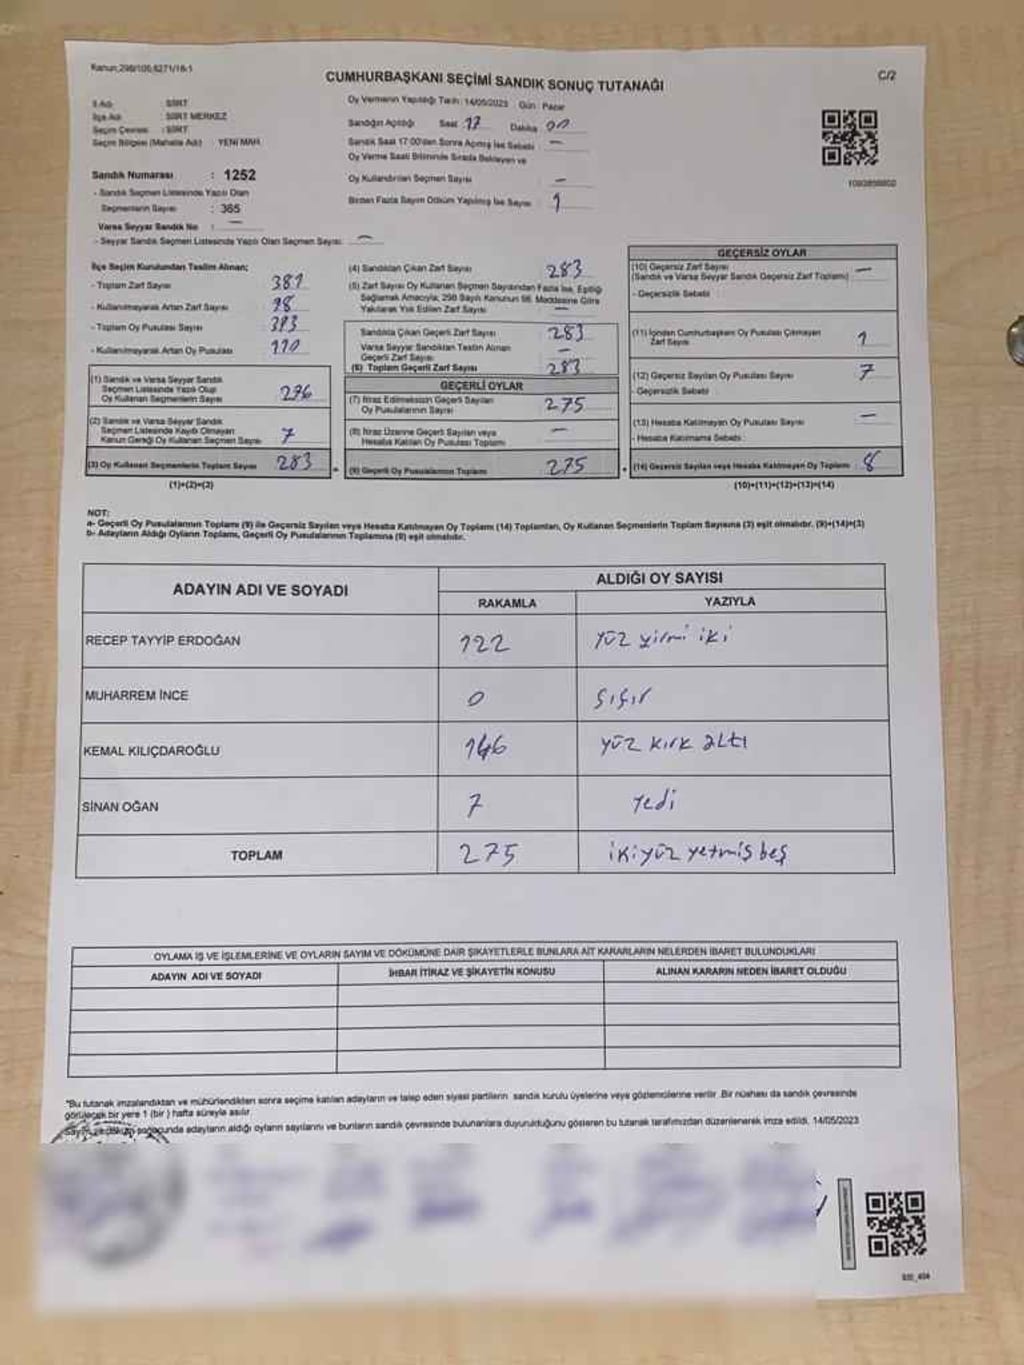 Kanun;298/105,6271/18-1
CUMHURBAŞKANI SEÇİMİ SANDIK SONUÇ TUTANAĞI
C/2
İl Adı : SİİRT
İlçe Adı : SİİRT MERKEZ
Seçim Çevresi : SİİRT
Seçim Bölgesi (Mahalle Adı) : YENİ MAH.
Sandık Numarası : 1252
- Sandık Seçmen Listesinde Yazılı Olan
Seçmenlerin Sayısı : 365
Varsa Seyyar Sandık No : —
- Seyyar Sandık Seçmen Listesinde Yazılı Olan Seçmen Sayısı: —
Oy Vermenin Yapıldığı Tarih: 14/05/2023 Gün: Pazar
Sandığın Açıldığı Saat 17 Dakika 00
Sandık Saat 17:00'den Sonra Açılmış İse Sebebi —
Oy Verme Saati Bitiminde Sırada Bekleyen ve
Oy Kullandırılan Seçmen Sayısı —
Birden Fazla Sayım Döküm Yapılmış İse Sayısı 1
İlçe Seçim Kurulundan Teslim Alınan;
- Toplam Zarf Sayısı 381
- Kullanılmayarak Artan Zarf Sayısı 98
- Toplam Oy Pusulası Sayısı 393
- Kullanılmayarak Artan Oy Pusulası 110
(1) Sandık ve Varsa Seyyar Sandık
Seçmen Listesinde Yazılı Olup
Oy Kullanan Seçmenlerin Sayısı 276
(2) Sandık ve Varsa Seyyar Sandık
Seçmen Listesinde Kayıtlı Olmayan
Kanun Gereği Oy Kullanan Seçmen Sayısı 7
(3) Oy Kullanan Seçmenlerin Toplam Sayısı 283
(1)+(2)=(3)
(4) Sandıktan Çıkan Zarf Sayısı 283
(5) Zarf Sayısı Oy Kullanan Seçmen Sayısından Fazla İse, Eşitliği
Sağlamak Amacıyla, 298 Sayılı Kanunun 98. Maddesine Göre
Yakılarak Yok Edilen Zarf Sayısı —
Sandıkta Çıkan Geçerli Zarf Sayısı 283
Varsa Seyyar Sandıktan Teslim Alınan
Geçerli Zarf Sayısı —
(6) Toplam Geçerli Zarf Sayısı 283
GEÇERLİ OYLAR
(7) İtiraz Edilmeksizin Geçerli Sayılan
Oy Pusulalarının Sayısı 275
(8) İtiraz Üzerine Geçerli Sayılan veya
Hesaba Katılan Oy Pusulası Toplamı —
(9) Geçerli Oy Pusulalarının Toplamı 275
GEÇERSİZ OYLAR
(10) Geçersiz Zarf Sayısı —
(Sandık ve Varsa Seyyar Sandık Geçersiz Zarf Toplamı)
- Geçersizlik Sebebi :
(11) İçinden Cumhurbaşkanı Oy Pusulası Çıkmayan
Zarf Sayısı 1
(12) Geçersiz Sayılan Oy Pusulası Sayısı 7
- Geçersizlik Sebebi :
(13) Hesaba Katılmayan Oy Pusulası Sayısı —
- Hesaba Katılmama Sebebi :
(14) Geçersiz Sayılan veya Hesaba Katılmayan Oy Toplamı 8
(10)+(11)+(12)+(13)=(14)
NOT:
a- Geçerli Oy Pusulalarının Toplamı (9) ile Geçersiz Sayılan veya Hesaba Katılmayan Oy Toplamı (14) Toplamları, Oy Kullanan Seçmenlerin Toplam Sayısına (3) eşit olmalıdır. (9)+(14)=(3)
b- Adayların Aldığı Oyların Toplamı, Geçerli Oy Pusulalarının Toplamına (9) eşit olmalıdır.
ADAYIN ADI VE SOYADI
ALDIĞI OY SAYISI
RAKAMLA YAZIYLA
RECEP TAYYİP ERDOĞAN 122 yüz yirmi iki
MUHARREM İNCE 0 sıfır
KEMAL KILIÇDAROĞLU 146 yüz kırk altı
SİNAN OĞAN 7 yedi
TOPLAM 275 ikiyüz yetmiş beş
OYLAMA İŞ VE İŞLEMLERİNE VE OYLARIN SAYIM VE DÖKÜMÜNE DAİR ŞİKAYETLERLE BUNLARA AİT KARARLARIN NELERDEN İBARET BULUNDUKLARI
ADAYIN ADI VE SOYADI İHBAR İTİRAZ VE ŞİKAYETİN KONUSU ALINAN KARARIN NEDEN İBARET OLDUĞU
"Bu tutanak imzalandıktan ve mühürlendikten sonra seçime katılan adayların ve talep eden siyasi partilerin sandık kurulu üyelerine veya gözlemcilerine verilir. Bir nüshası da sandık çevresinde
görülecek bir yere 1 (bir) hafta süreyle asılır.
adayların aldığı oyların sayılarını ve bunların sandık çevresinde bulunanlara duyurulduğunu gösteren bu tutanak tarafımızdan düzenlenerek imza edildi. 14/05/2023